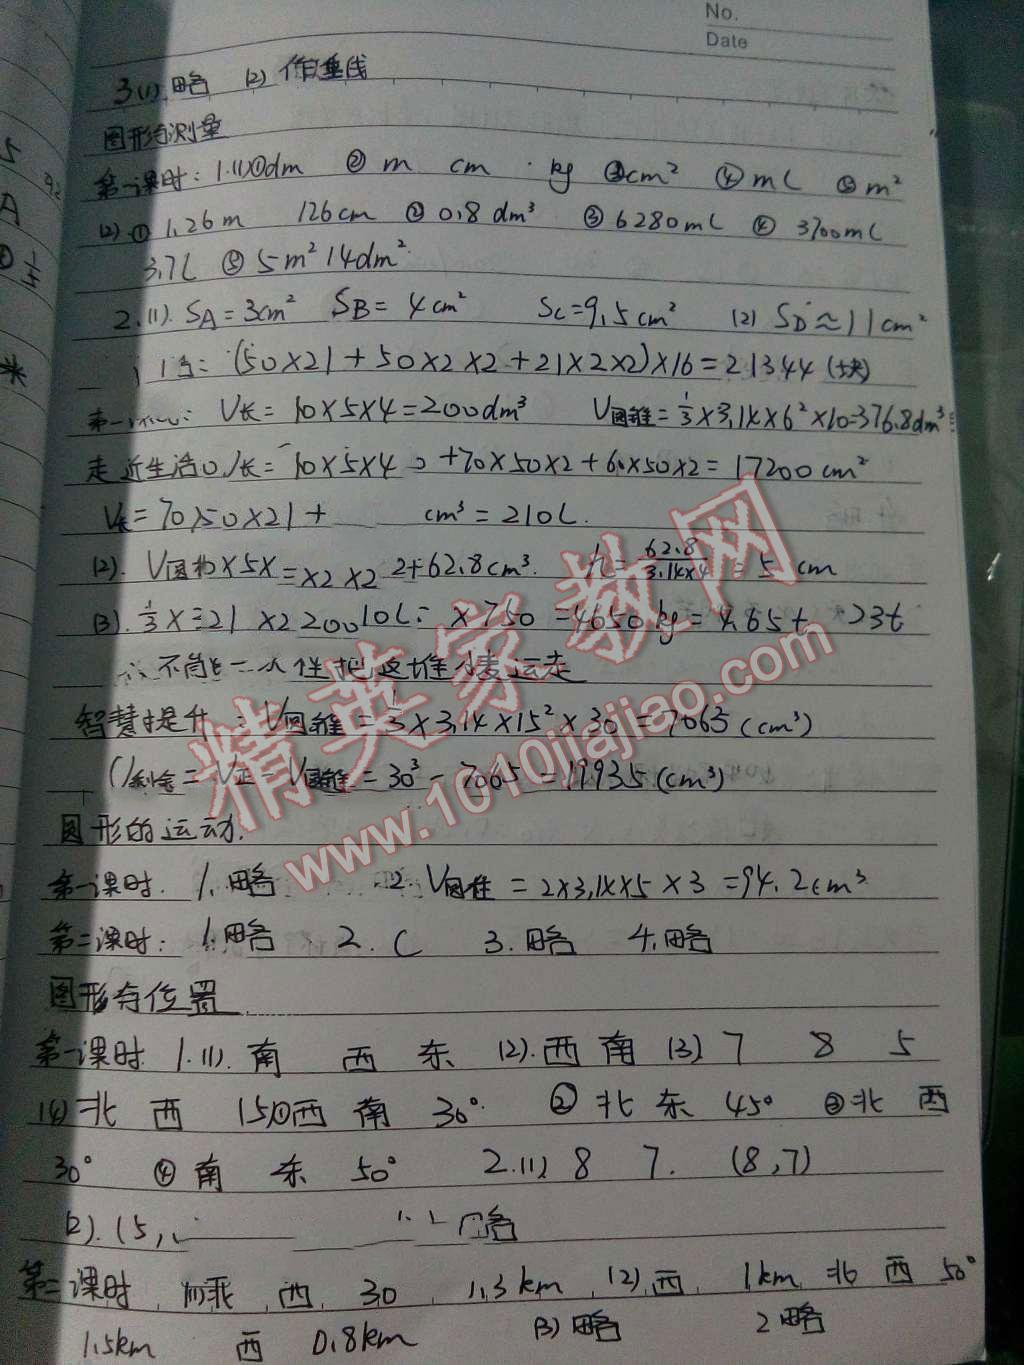 No.
Date
3(1).略 (2) 作垂线
图形与测量
第一课时: 1.(1)①dm ②m cm kg ③cm² ④mL ⑤m²
(2) ① 1.26m 126cm ② 0.8dm³ ③ 6280mL ④ 3700mL
3.7L ⑤ 5m² 14dm²
2.(1). SA=3cm² SB=4cm² SC=9.5cm² (2) SD≈11cm²
(50×21+50×2×2+21×2×2)×16=21344(块)
V长=10×5×4=200dm³ V圆锥=⅓×3.14×6²×10=376.8dm³
走近生活 长=10×5×4 +70×50×2+60×50×2=17200cm²
V长=70×50×21+ cm³=210L.
(2). V圆 ×5×=×2×2 2÷62.8cm³. h=62.8/3.14×4=5 cm
(3). ⅓×=21×2 200 10L= ×750=4650kg=4.65t 23t
不能一次性把这堆小麦运走
智慧提升: V圆锥=⅓×3.14×15²×30=7065(cm³)
V剩余=V正-V圆锥=30³-7065=19935(cm³)
图形的运动.
第一课时. 1.略 2. V圆柱=2×3.14×5×3=94.2cm³
第二课时: 1.略 2.C 3.略 4.略
图形与位置
第一课时 1.(1).南 西 东 (2).西 南 (3) 7 8 5
(4)北 西 (5)①西 南 30° ②北 东 45° ③北 西
30° ④南 东 50° 2.(1) 8 7. (8,7)
(2).(5, 略
第二课时. (1)北 西 30 1.3km (2).西 1km 北 西 50°
1.5km 西 0.8km (3)略 2略
精英家教网
www.1010jiajiao.com